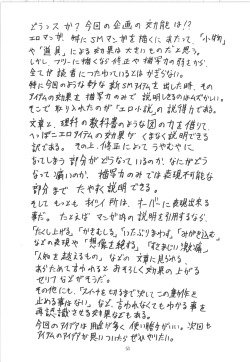 どうっスか?今回の企画の効能は!?
エロマンガ、特にSMマンガを描くにあたって、「小物」
や「道具」による効果は大きいものだと思う。
しかし、フリーに描くなら修正や描写力の弱さから、
全てが読者につたわっているとはかぎらない。
特に今回のような妙な新SMアイテムを出した時、その
アイテムの効果を描写力のみで説明しきるのはむずかしい。
そこで取り入れたのが「エロ小説」の説得力である。
文章と、理科の教科書のような図の力を借りて、
アイテムの効果がくまなく説明できる
試である。その上、修正によってうやむやに
なってしまう部分がどうなっているのか、なにがどう
なって痛いのか、描写力のみでは表現不可能な
部分までたやすく説明できる。
そしてもっともオイシイ所は、オーバーに表現出来る
事だ。たとえばマンガ内の説明を引用するなら、
「たくし上げる」「かきむしる」「ったぶりまわす」「みがき込む」
などの表現や「想像を絶する」「すさまじい激痛」
「人知を越えるもの」などの文章に見られる、
あらためて言われるとおそろしく効果の上がる
セリフなどがそうだ。
その他にも、「スイッチを切るまで決してこの動作を
止める事はない」など、言われなくてもわかる事を
再認識させる効果などもある。
今回のアイデアは用途が多く使い勝手がいい。次回も
アイテムのアイデアが見つかったらぜひやりたい。